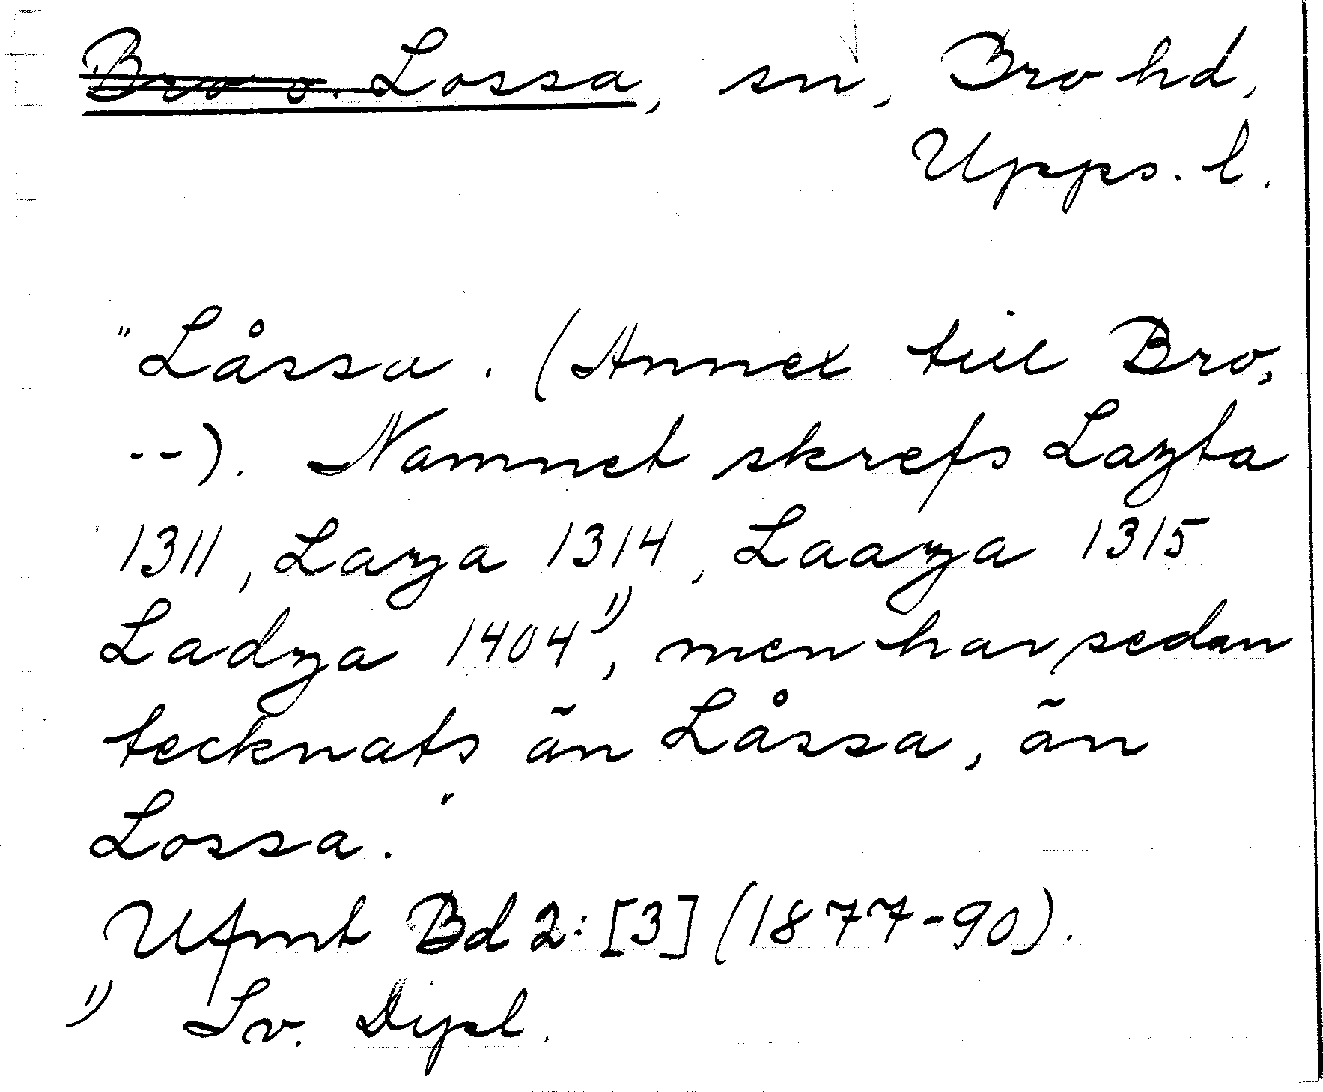 Bro o. Lossa, sn, Bro hd,
Upps. l.
"Låssa. (Annex till Bro,
--). Namnet skrefs Lazta
1311, Laza 1314, Laaza 1315
Ladza 1404¹⁾, men har sedan
tecknats än Låssa, än
Lossa."
UFmt Bd 2: [3] (1877-90).
¹⁾ Sv. Dipl.